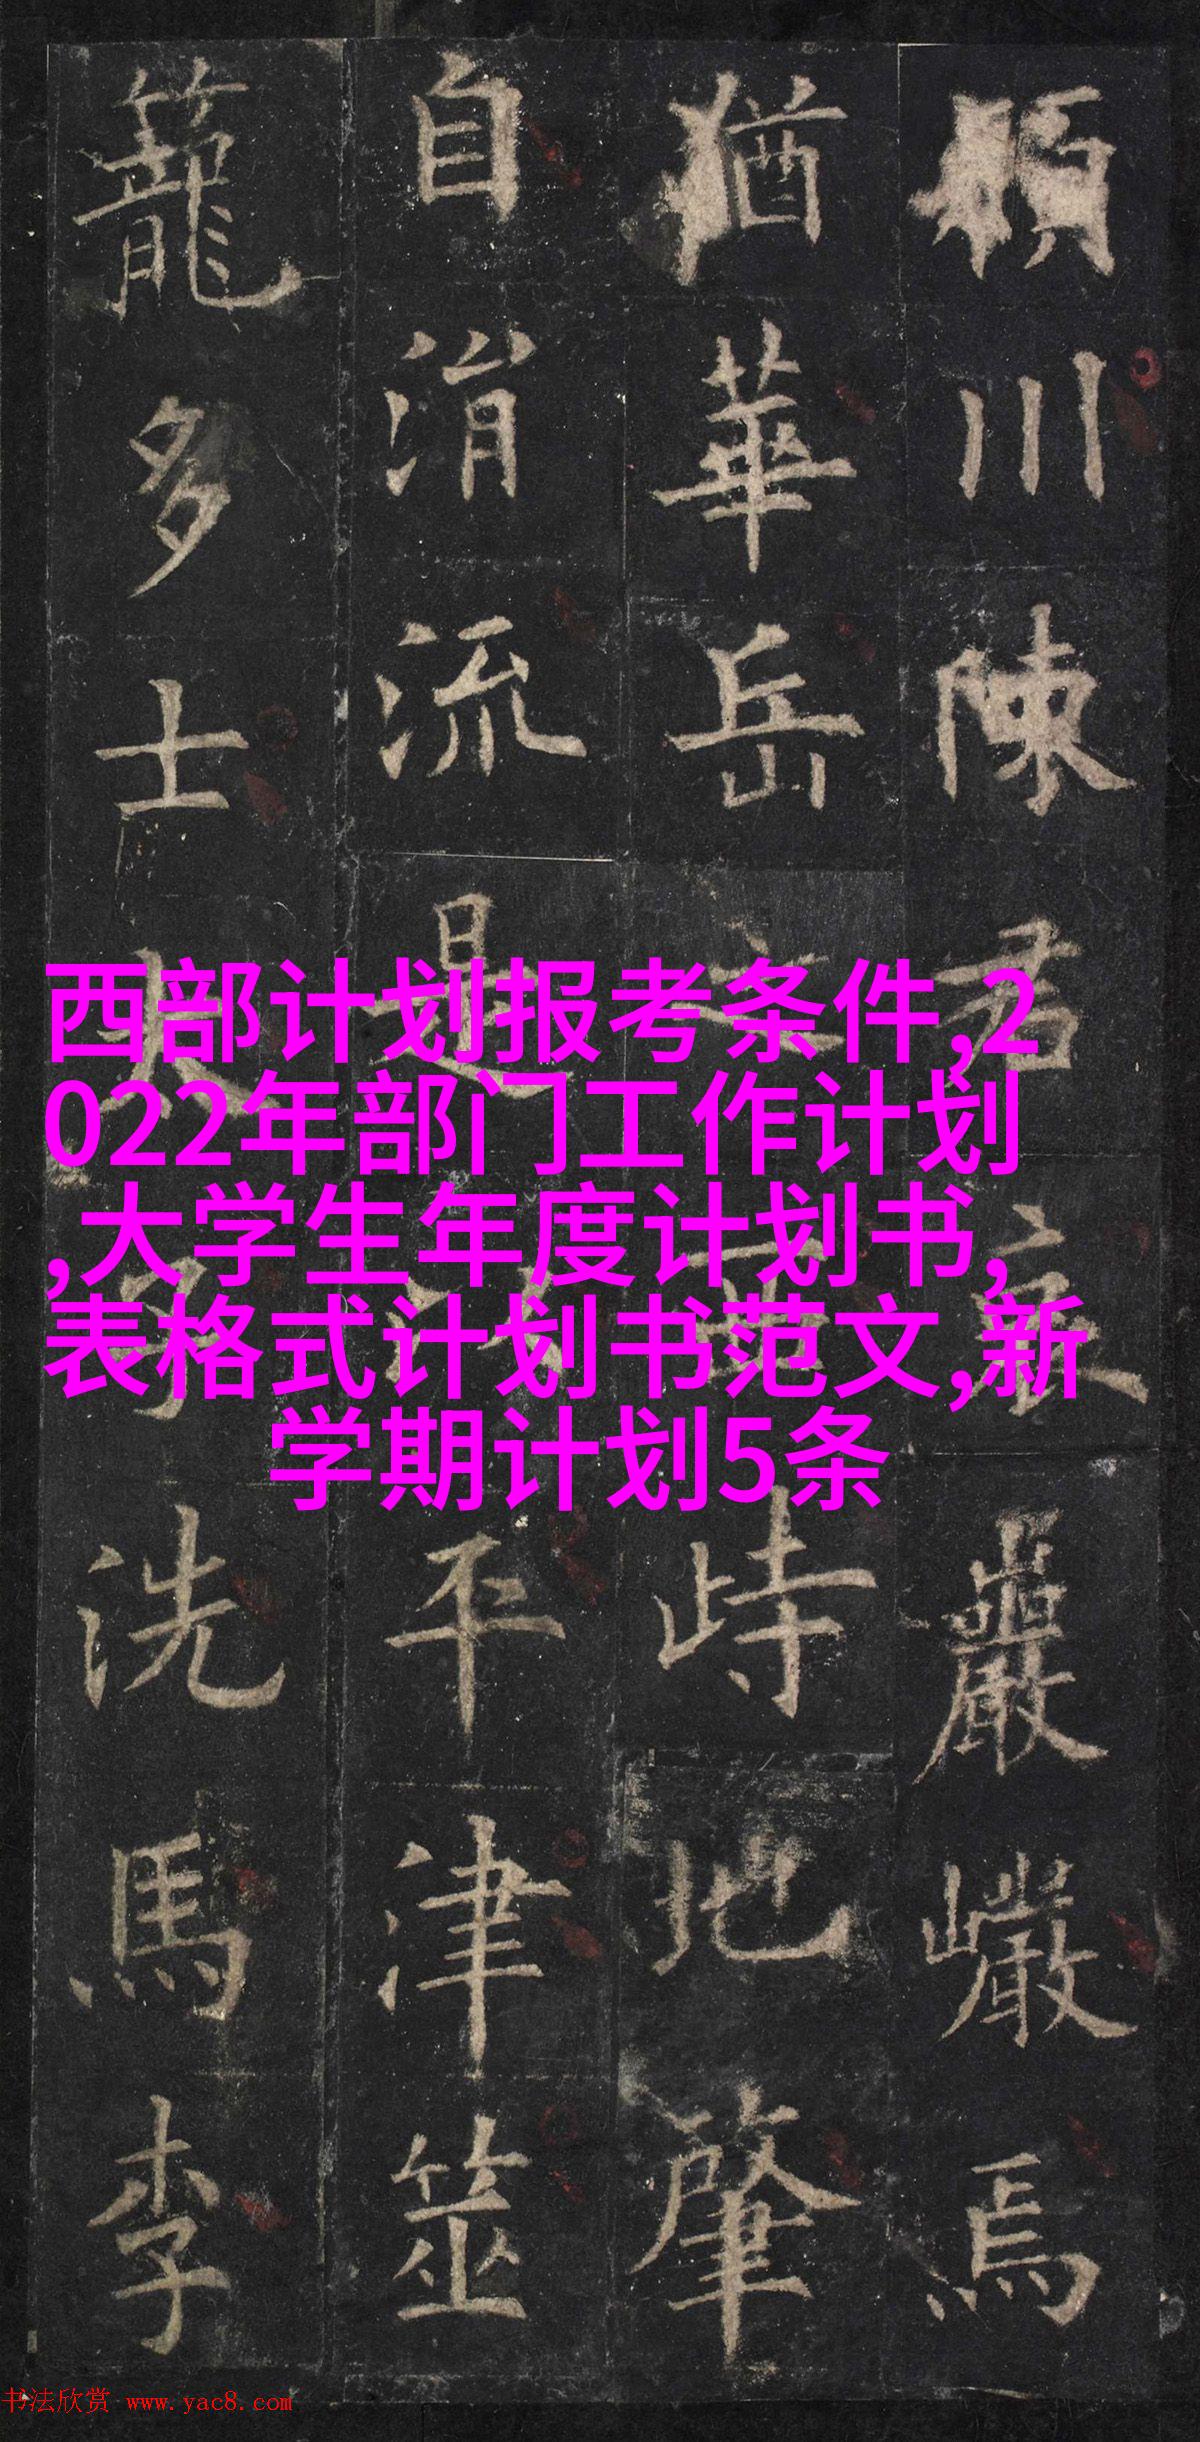 川陳君巖巗焉
猶華岳之峙地肇
自涓流是平津筮
籠多士洗馬李
西部计划报考条件,2
022年部门工作计划
,大学生年度计划书,
表格式计划书范文,新
学期计划5条
书法欣赏 www.yac8.com